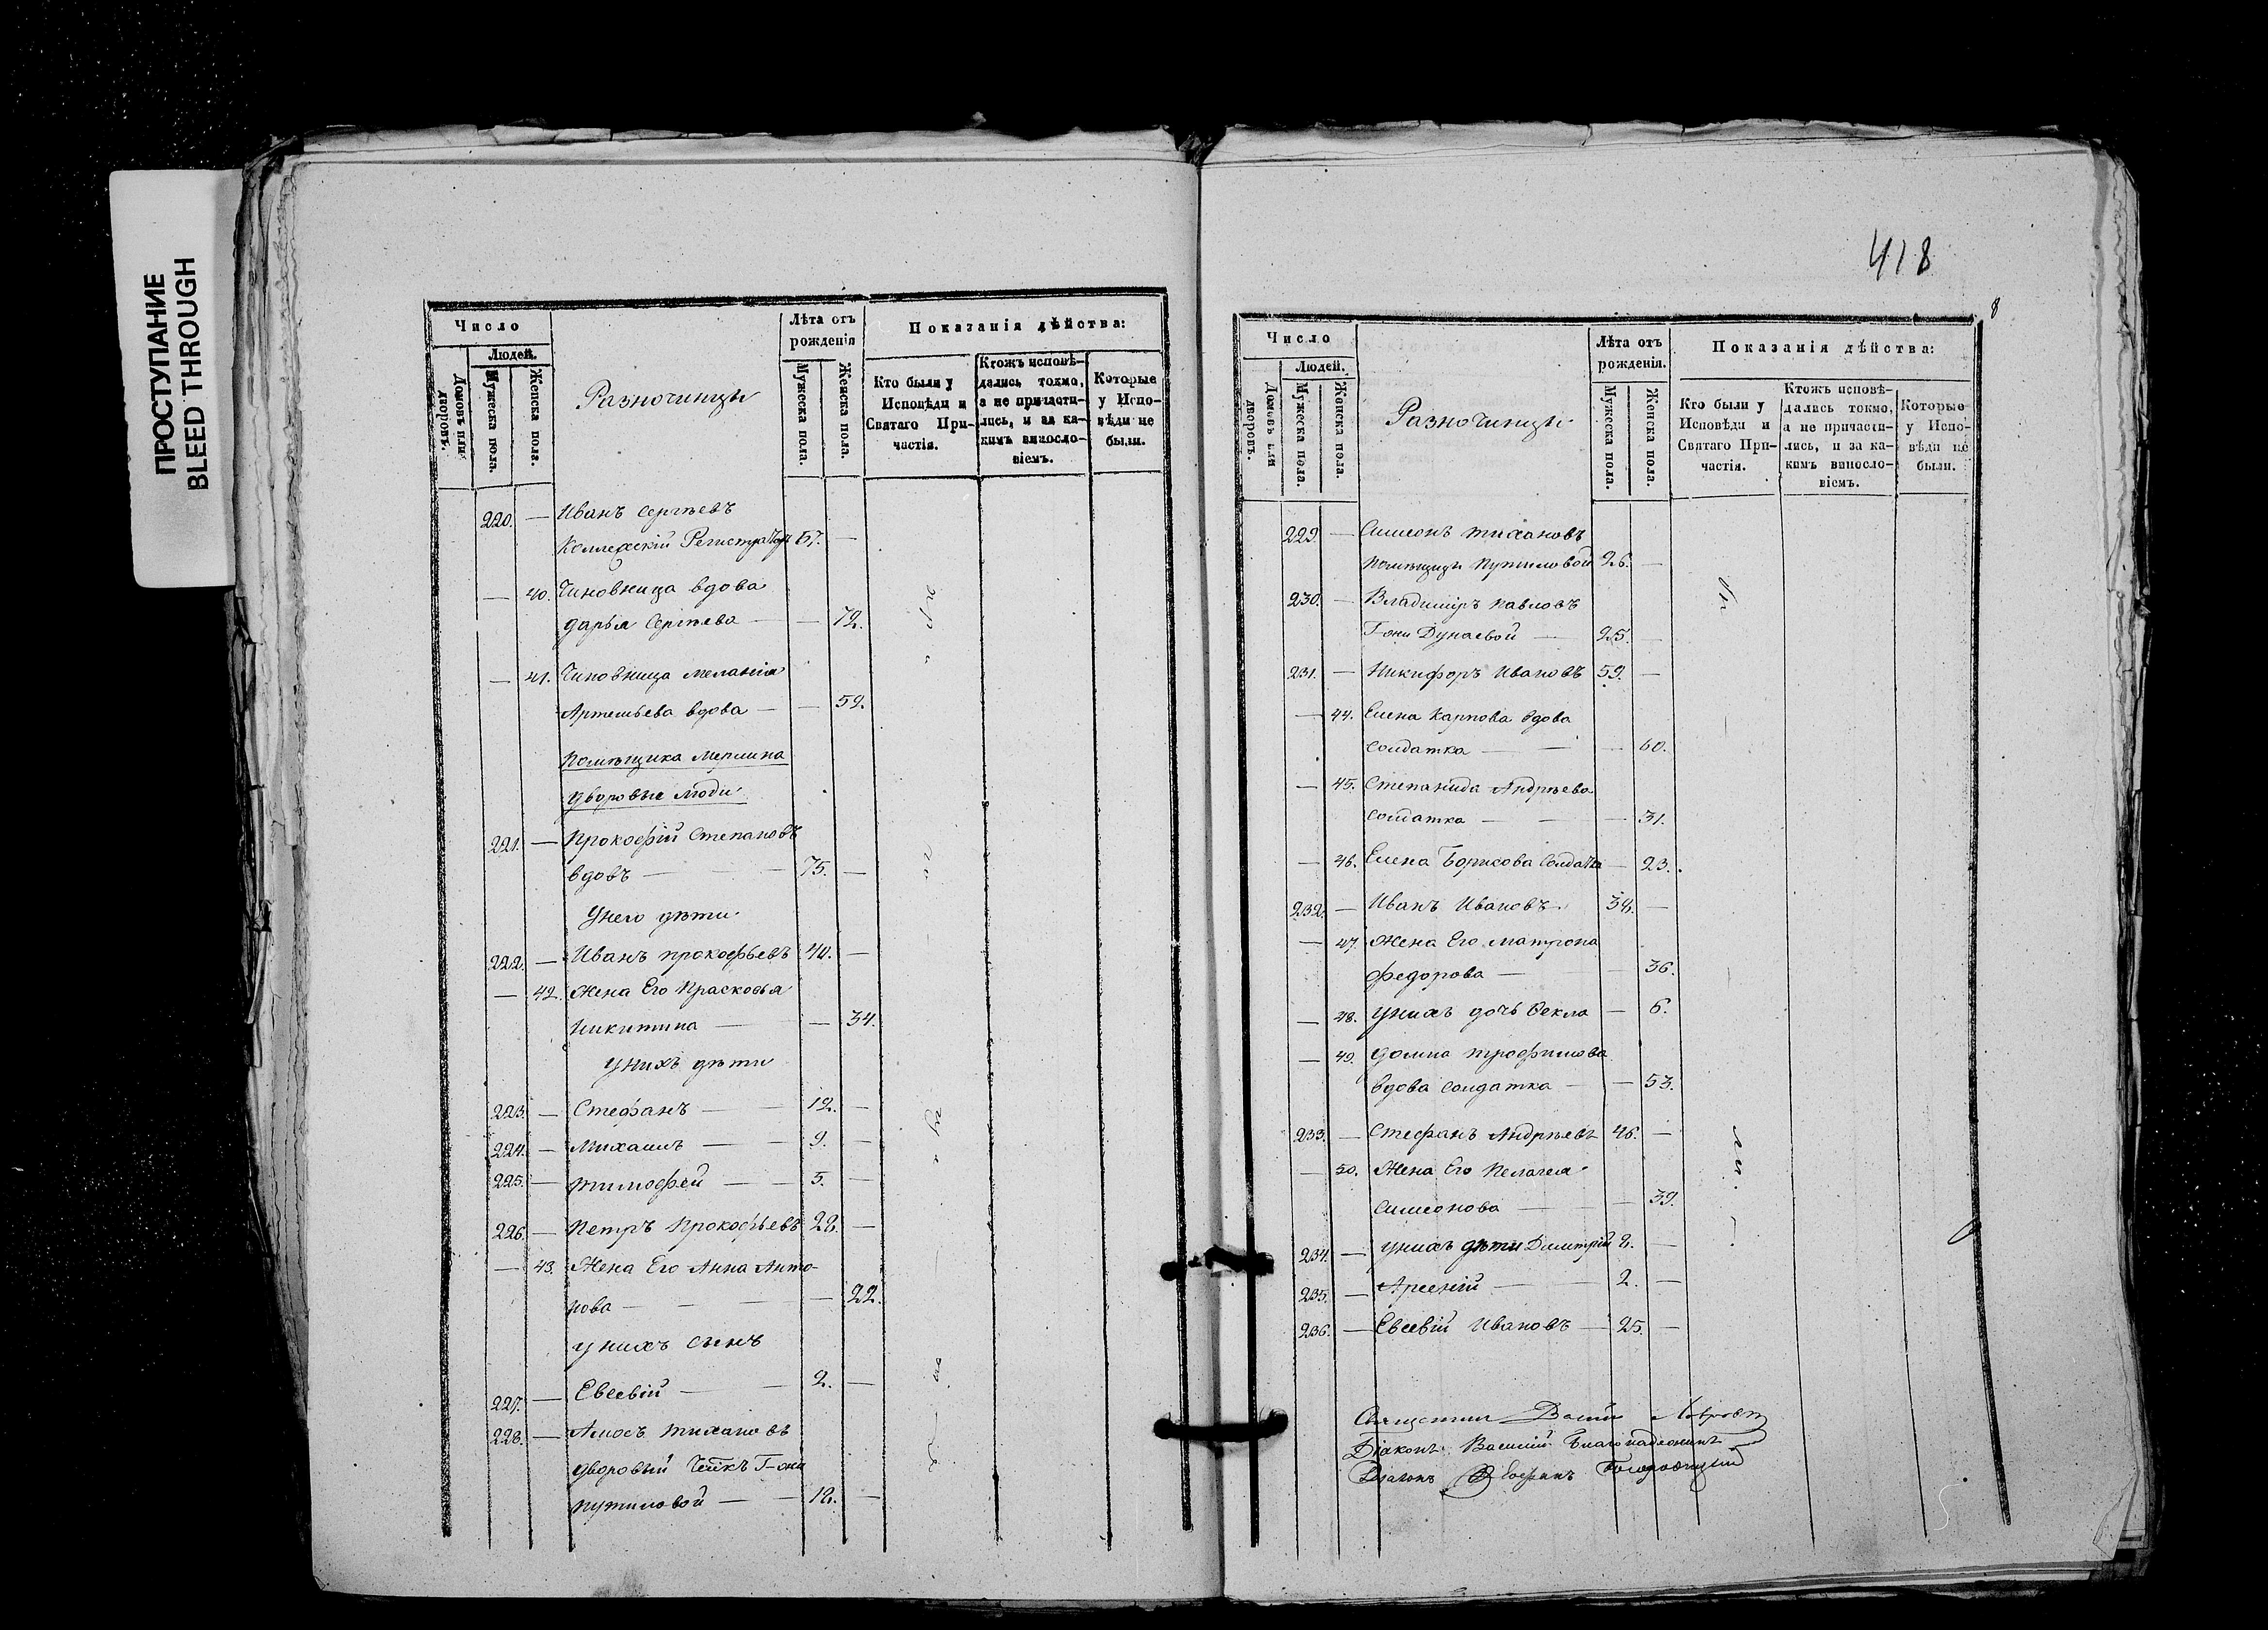 ПРОСТУПАНИЕ
BLEED THROUGH
Число
Людей.
Домовъ или дворовъ.
Мужеска пола.
Женска пола.
Разночинцы
Лѣта отъ рожденія
Мужеска пола.
Женска пола.
Показанія дѣйства:
Кто были у Исповѣди и Святаго Причастія.
Ктожъ исповѣдались токмо, а не причастились, и за какимъ винословіемъ.
Которые у Исповѣди не были.
220. — Иванъ Сергѣевъ
Коллежскій Регистраторъ 57. —
— 40. Чиновница вдова
Дарья Сергѣева — — 72.
— 41. Чиновница Меланія
Артемьева вдова — — 59.
Помѣщика Мерлина
дворовые люди
221. — Прокофій Степановъ
вдовъ — — 75. —
У него дѣти
222. — Иванъ Прокофьевъ 40. —
— 42. Жена Его Прасковья
Никитина — — 34.
У нихъ дѣти
223. — Стефанъ — — 12. —
224. — Михаилъ — — 9. —
225. — Тимофей — — 5. —
226. — Петръ Прокофьевъ 22. —
— 43. Жена Его Анна Анто-
нова — — — 22.
У нихъ сынъ
227. — Евсевій — — 2. —
228. — Амосъ Тихановъ
дворовый Г-жи
Путиловой — — 12. —
418
8
Число
Людей.
Домовъ или дворовъ.
Мужеска пола.
Женска пола.
Разночинцы
Лѣта отъ рожденія.
Мужеска пола.
Женска пола.
Показанія дѣйства:
Кто были у Исповѣди и Святаго Причастія.
Ктожъ исповѣдались токмо, а не причастились, и за какимъ винословіемъ.
Которые у Исповѣди не были.
229. — Симеонъ Тихановъ
Помѣщицы Путиловой 26. —
230. — Владиміръ Павловъ
Г-жи Дунаевой — 25. —
231. — Никифоръ Ивановъ 59. —
— 44. Елена Карпова вдова
солдатка — — — 60.
— 45. Степанида Андрѣева
солдатка — — — 31.
— 46. Елена Борисова солдатка — 23.
232. — Иванъ Ивановъ 34. —
— 47. Жена Его Матрона
Федорова — — 36.
— 48. У нихъ дочь Фекла — 6.
— 49. Домна Трофимова
вдова солдатка — — 53.
233. — Стефанъ Андрѣевъ 46. —
— 50. Жена Его Пелагея
Симеонова — — 39.
234. — У нихъ дѣти Димитрій 2. —
235. — Арсеній — — 2. —
236. — Евсевій Ивановъ — 25. —
Діаконъ Василій